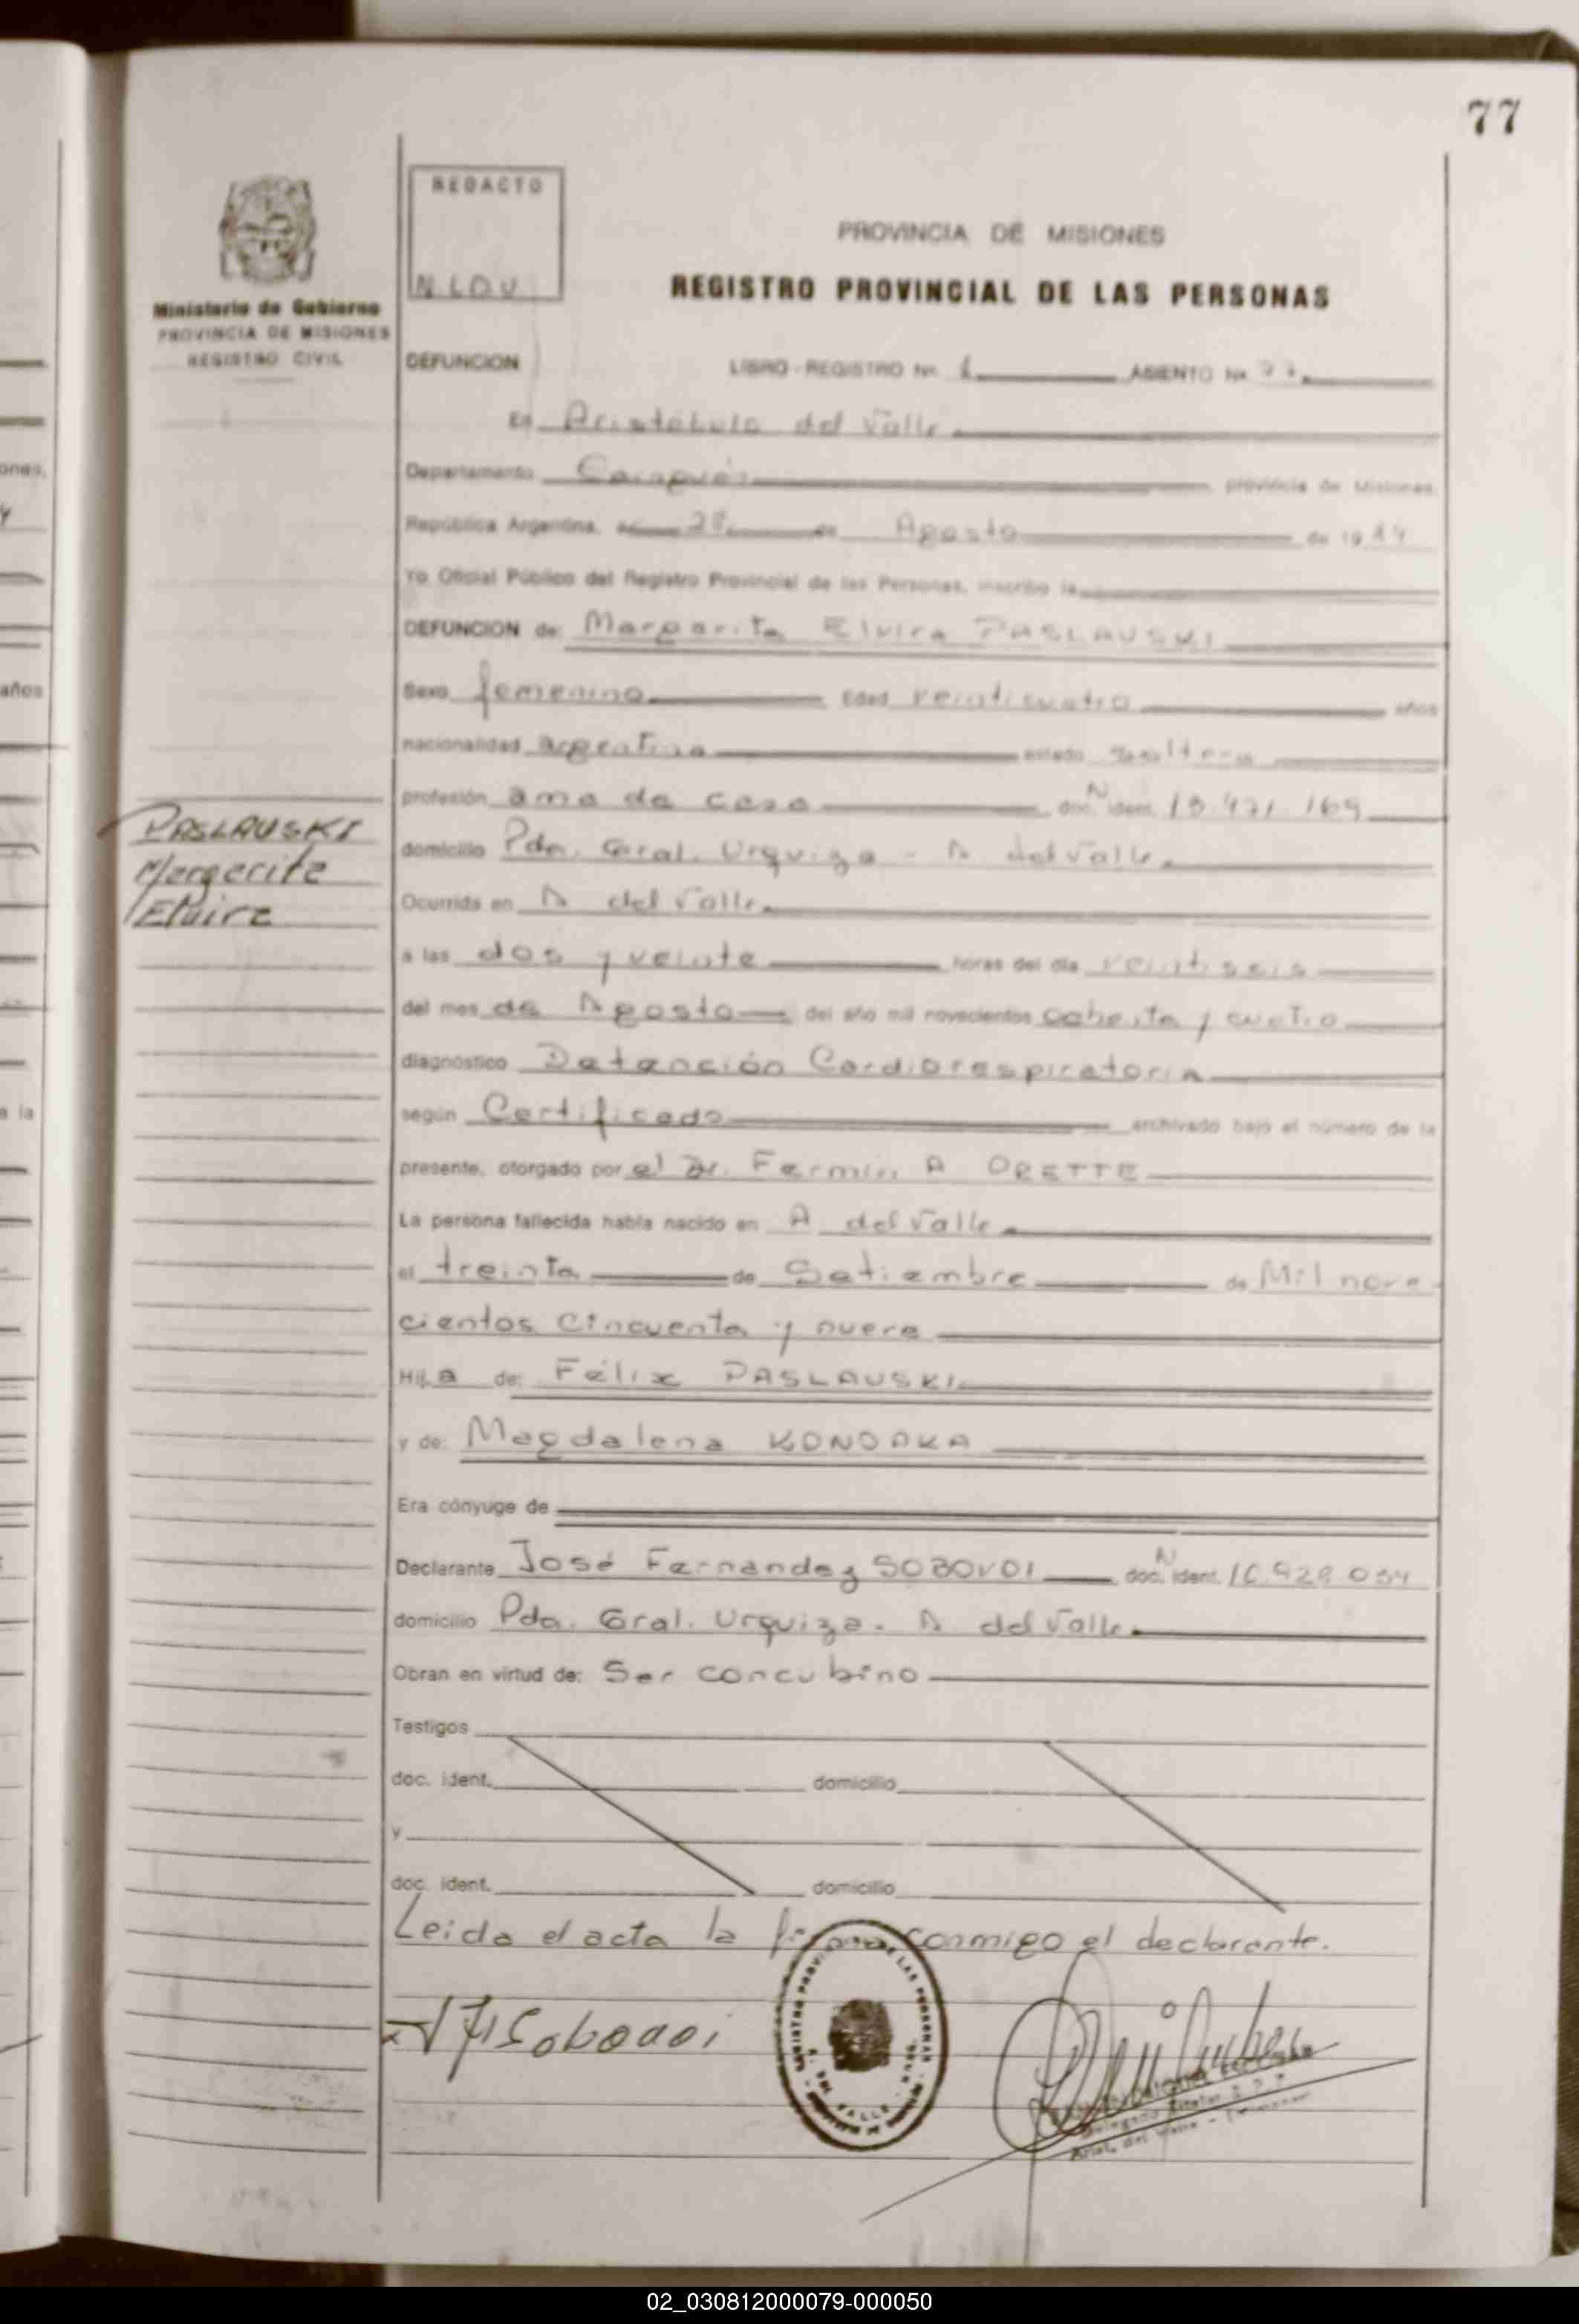 77
REDACTO
N.L.D.V
PROVINCIA DE MISIONES
REGISTRO PROVINCIAL DE LAS PERSONAS
Ministerio de Gobierno
PROVINCIA DE MISIONES
REGISTRO CIVIL
DEFUNCION LIBRO - REGISTRO Nº 1 ASIENTO Nº 77
En Aristóbulo del Valle
Departamento Cainguás provincia de Misiones,
República Argentina, a 28 de Agosto de 1984
Yo Oficial Público del Registro Provincial de las Personas, inscribo la
DEFUNCION de: Margarita Elvira PASLAUSKI
Sexo femenino Edad veinticuatro años
nacionalidad argentina estado soltera
profesión ama de casa doc. N ident. 13.471.169
PASLAUSKI
Margarita
Elvira
domicilio Pda. Gral. Urquiza - A del Valle
Ocurrida en A del Valle
a las dos y veinte horas del día veintiseis
del mes de Agosto del año mil novecientos ochenta y cuatro
diagnóstico Detención Cardiorespiratoria
según Certificado archivado bajo el número de la
presente, otorgado por el Dr. Fermín A ORETTE
La persona fallecida había nacido en A del Valle
el treinta de Setiembre de Mil nove-
cientos cincuenta y nueve
Hija de: Félix PASLAUSKI
y de: Magdalena KONDAKA
Era cónyuge de
Declarante José Fernandez SOBOVOI doc. N ident. 16.429.034
domicilio Pda. Gral. Urquiza. A del Valle
Obran en virtud de: Ser concubino
Testigos
doc. ident. domicilio
y
doc. ident. domicilio
Leida el acta la firma conmigo el declarante.
Sobovoi
REGISTRO PROVINCIAL DE LAS PERSONAS
A. DEL VALLE
02_030812000079-000050